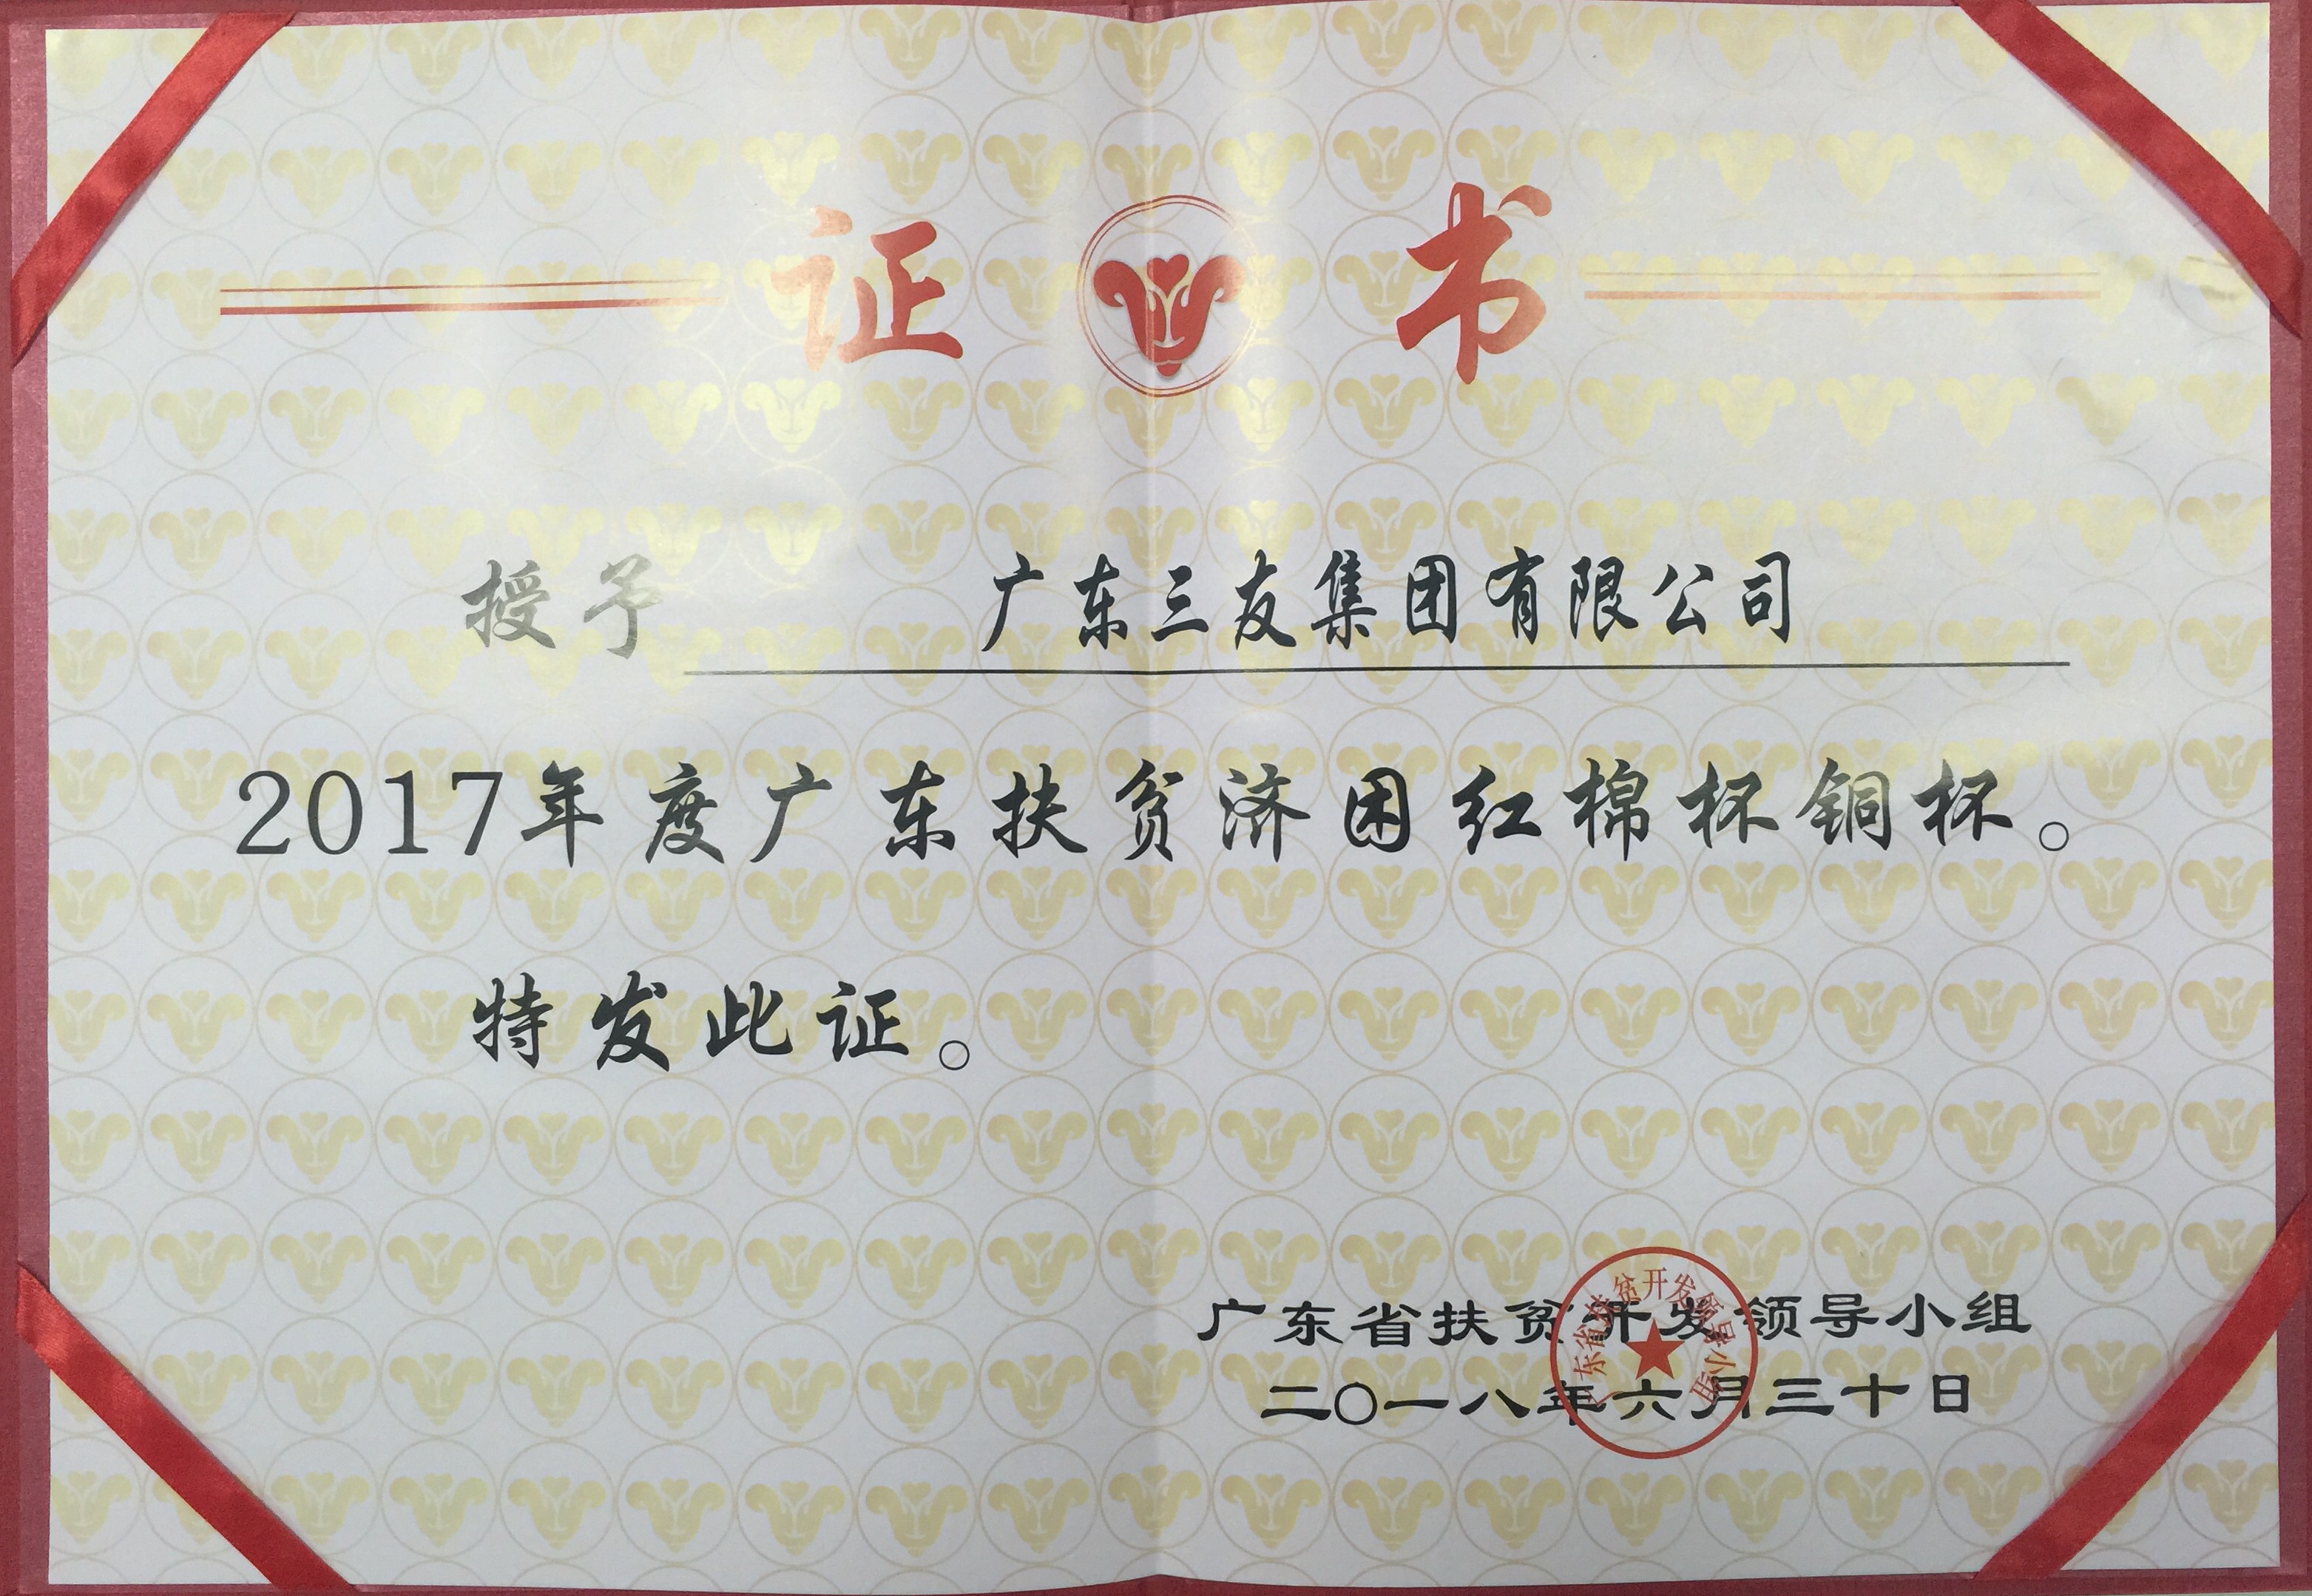 证书
授予 广东三友集团有限公司
2017年度广东扶贫济困红棉杯铜杯。
特发此证。
广东省扶贫开发领导小组
二〇一八年六月三十日
广东省扶贫开发领导小组